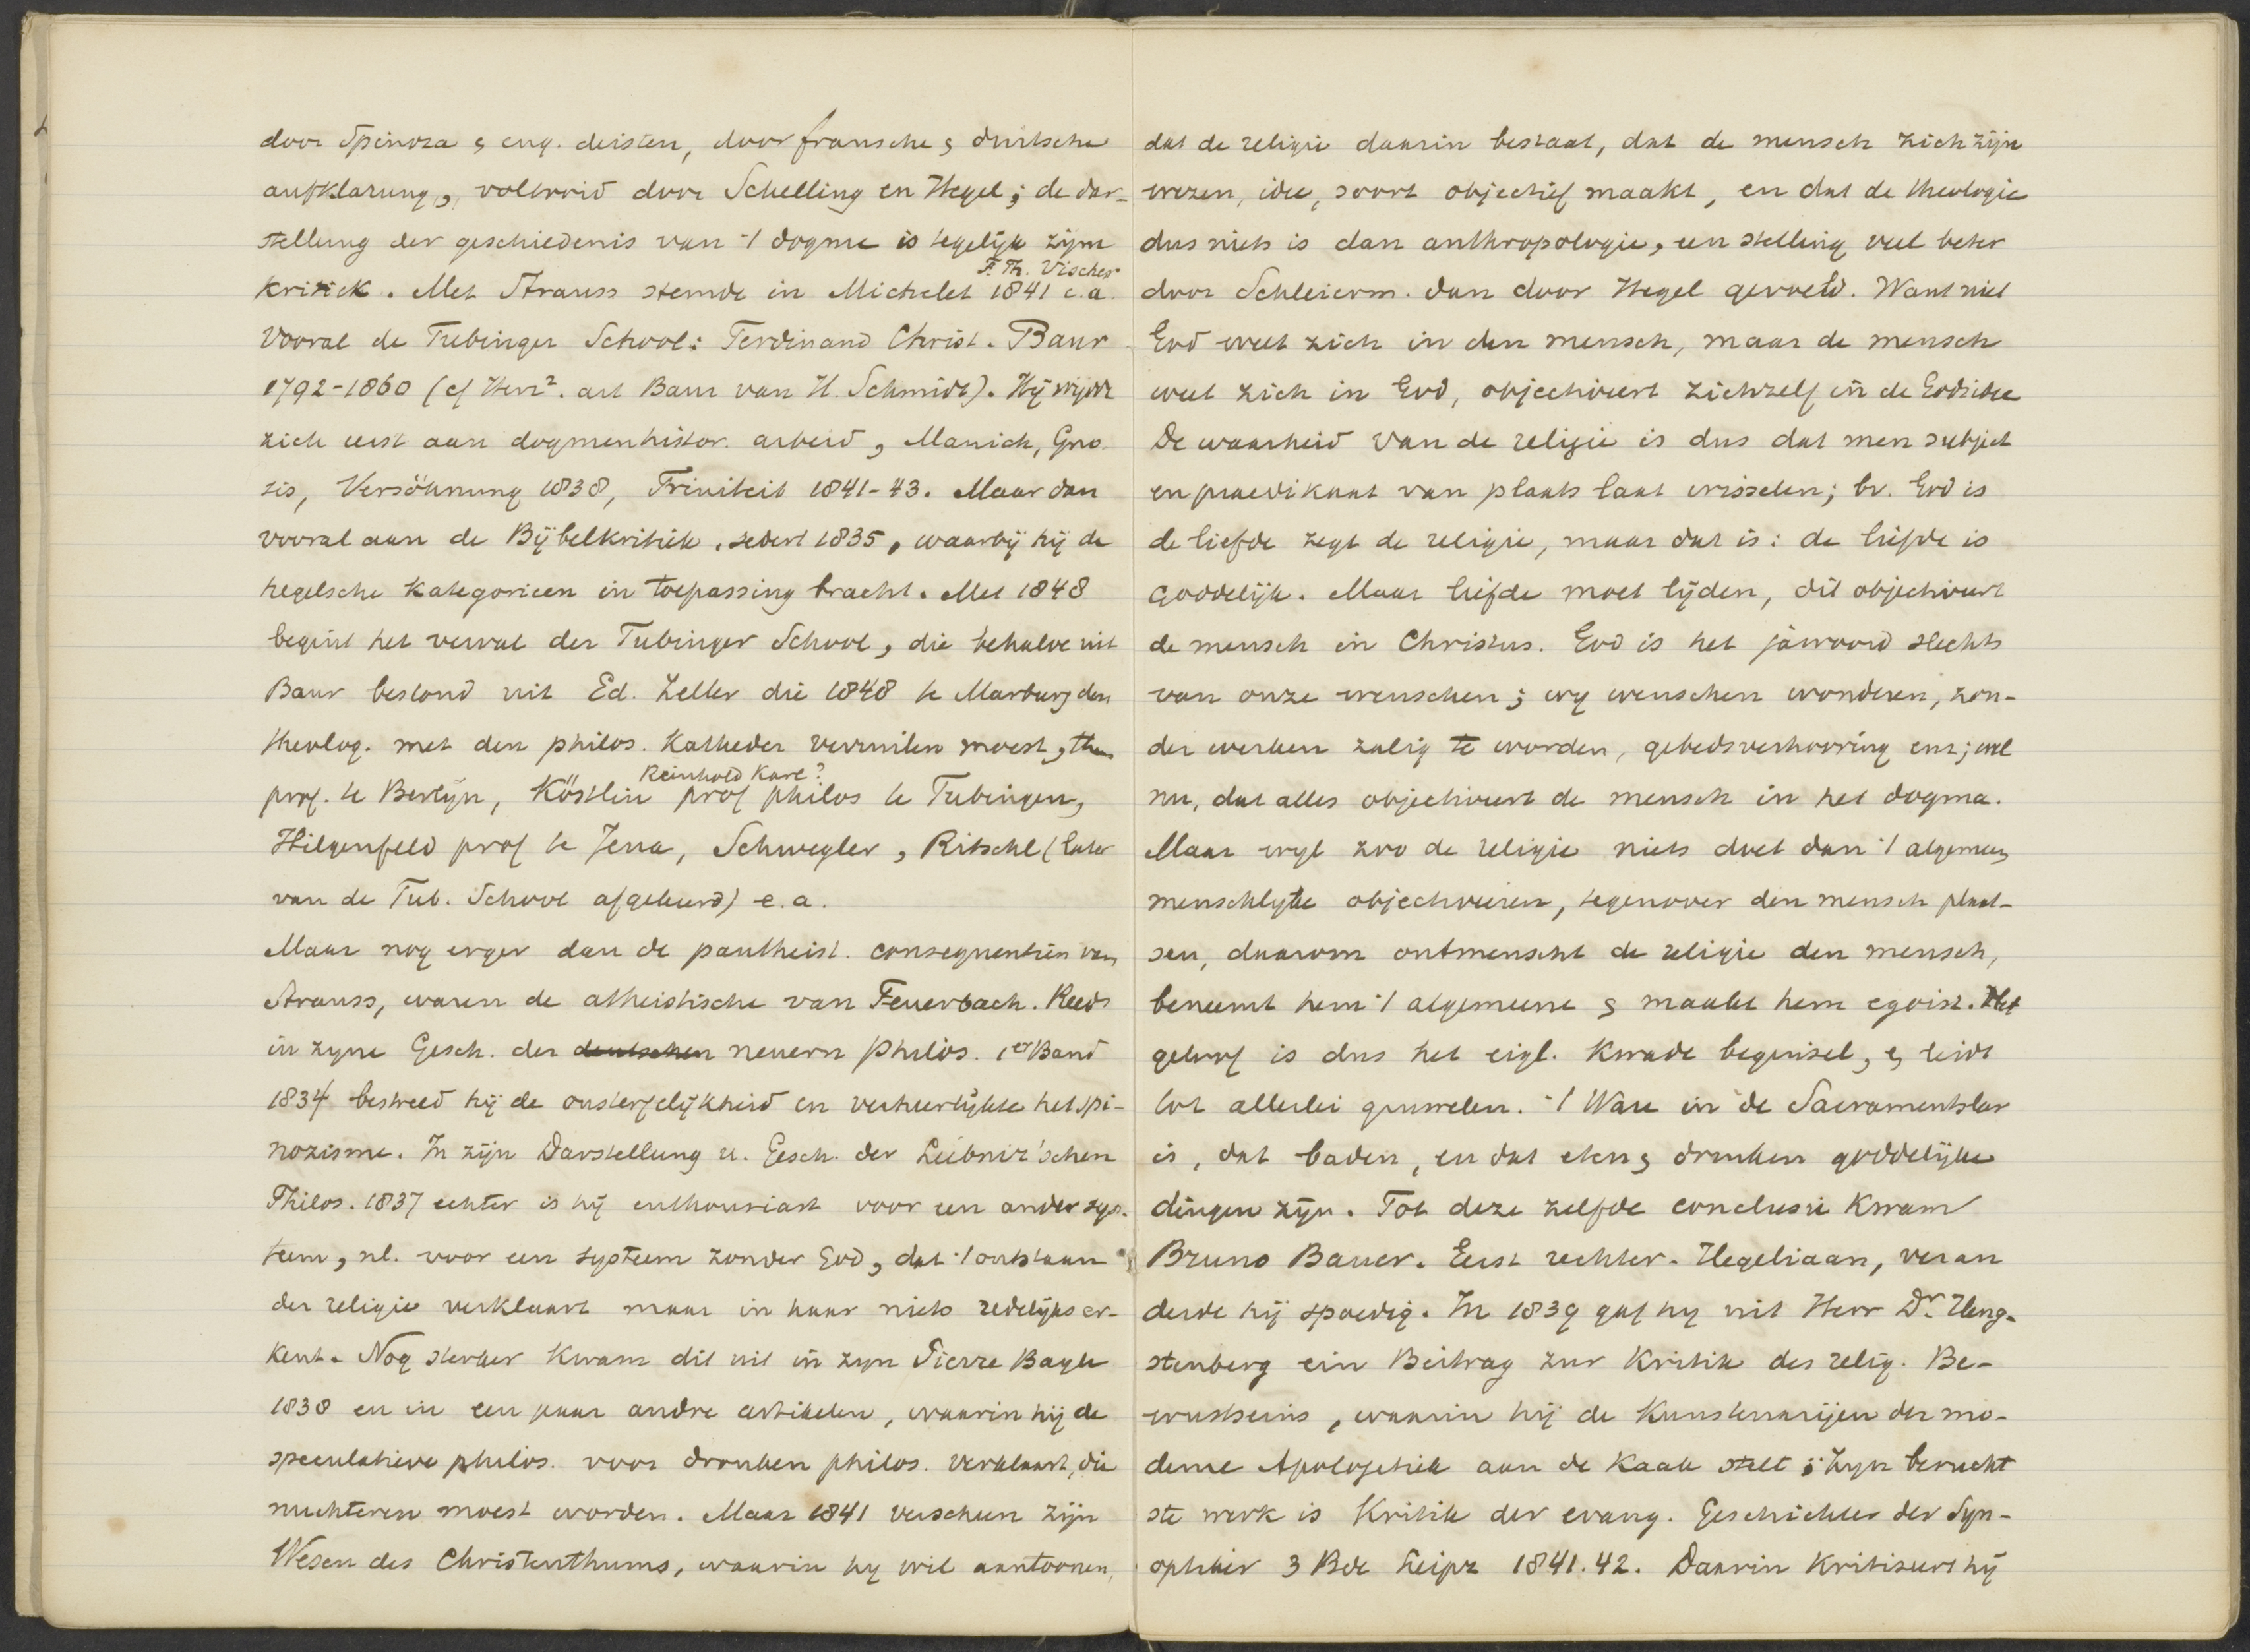 door Spinoza & eng. deisten, door fransche & duitsche
aufklarung, voltooid door Schelling en Hegel; de dar-
stellung der geschiedenis van 't dogme is tegelijk zijne
F. Th. Vischer
kritiek. Met Strauss stemde in Michelet 1841 e.a.
vooral de Tubinger School: Ferdinand Christ. Baur
1792-1860 (cf Herz². art Baur van H. Schmidt). Hij wijdde
zich eerst aan dogmenhistor. arbeid, Manich, Gno
sis, Versöhnung 1838, Triniteit 1841-43. Maar dan
vooral aan de Bijbelkritiek, sedert 1835, waarbij hij de
hegelsche kategorieen in toepassing bracht. Met 1848
begint het verval der Tubinger School, die behalve uit
Baur bestond uit Ed. Zeller die 1848 te Marburg den
theolog. met den philos. Katheder verruilen moest, thans
Reinhold Karl?
prof. te Berlijn, Köstlin prof philos te Tubingen,
Hilgenfeld prof te Jena, Schwegler, Ritschl (later
van de Tub. School afgekeerd) e.a.
Maar nog erger dan de pantheist. consequentiën van
Strauss, waren de atheistische van Feuerbach. Reeds
in zyne Gesch. der deutschen neuern Philos. 1er Band
1834 bestreed hij de onsterfelijkheid en verheerlijkte het spi-
nozisme. In zijn Darstellung u. Gesch. der Leibniz'schen
Philos. 1837 echter is hij enthousiast voor een ander sys-
teem, nl. voor een systeem zonder God, dat 't ontstaan
der religie verklaart maar in haar niets redelijks er-
kent. Nog sterker kwam dit uit in zyn Pierre Bayle
1838 en in een paar andre artikelen, waarin hij de
speculatieve philos. voor dronken philos. verklaart, die
nuchteren moest worden. Maar 1841 verscheen zijn
Wesen des Christenthums, waarin hy wil aantoonen,
dat de religie daarin bestaat, dat de mensch zich zijn
wezen, idee, soort objectief maakt, en dat de theologie
dus niets is dan anthropologie, een stelling veel beter
door Schleierm. dan door Hegel gevoeld. Want niet
God weet zich in den mensch, maar de mensch
weet zich in God, objectiveert zichzelf in de Godsidee
De waarheid van de religie is dus dat men subject
en praedikaat van plaats laat wisselen; bv. God is
de liefde zegt de religie, maar dat is: de liefde is
goddelijk. Maar liefde moet lijden, dit objectiveert
de mensch in Christus. God is het jawoord slechts
van onze wenschen; wy wenschen wonderen, zon-
der werken zalig te worden, gebedsverhooring enz; wel
nu, dat alles objectiveert de mensch in het dogma.
Maar wyl zoo de religie niets doet dan 't algemeen
menschlyke objectiveeren, tegenover den mensch plaat-
sen, daarom ontmenscht de religie den mensch,
beneemt hem 't algemeene & maakt hem egoist. Het
geloof is dus het eigl. kwade beginsel, & leidt
tot allerlei gruwelen. 't Ware in de Sacramentsleer
is, dat baden, en dat eten & drinken goddelijke
dingen zijn. Tot deze zelfde conclusie kwam
Bruno Bauer. Eerst rechter-Hegeliaan, veran
derde hij spoedig. In 1839 gaf hy uit Herr Dr. Heng-
stenberg ein Beitrag zur Kritik des relig. Be-
wustseins, waarin hij de kunstenarijen der mo-
derne Apologetiek aan de kaak stelt; Zyn berucht
ste werk is Kritik der evang. Geschichte der Syn-
optiker 3 Bde Leipz 1841.42. Daarin kritiseert hij